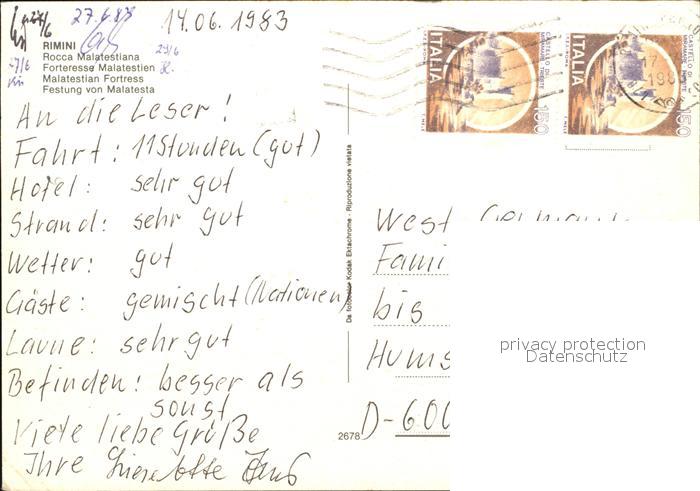 27.6.83
14.06.1983
RIMINI
Rocca Malatestiana
Forteresse Malatestien
Malatestian Fortress
Festung von Malatesta
27/6
29/6
An die Leser!
Fahrt: 11 Stunden (gut)
Hotel: sehr gut
Strand: sehr gut
Wetter: gut
Gäste: gemischt (Nationen)
Laune: sehr gut
Befinden: besser als
sonst
Viele liebe Grüße
Ihre Lieselotte
Da fotocolor Kodak Ektachrome - Riproduzione vietata
2678
ITALIA
CASTELLO DI
MIRAMARE TRIESTE
150
ITALIA
CASTELLO DI
MIRAMARE TRIESTE
150
West
Fami
bis
Hums
D-600
privacy protection
Datenschutz